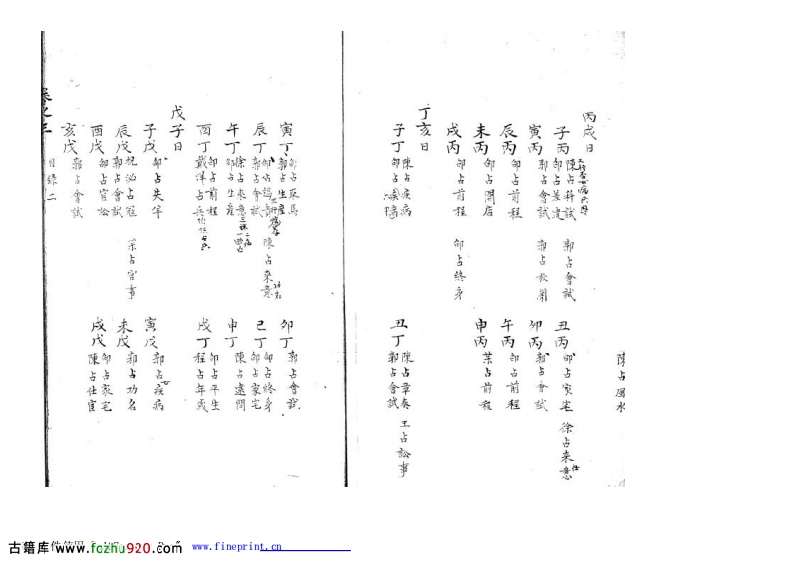 陳占風水
丙戌日
子丙 陳占科試
邵占差遣 郭占會試
丑丙 邵占家宅 徐占來意
寅丙 郭占會試 郭占秋闈
卯丙 郭占會試
辰丙 邵占前程
午丙 邵占前程
未丙 邵占開店
申丙 葉占前程
戌丙 邵占前程 邵占終身
丁亥日
子丁 陳占疾病
丑丁 陳占章奏
郭占會試 王占訟事
寅丁 邵占取馬
郭占生產
卯丁 郭占會試
辰丁 陳占來意
郭占會試
巳丁 邵占終身
邵占家宅
午丁 徐占來意
邵占生產
申丁 陳占遠問
酉丁 邵占前程
戴洋占兵
戌丁 邵占平生
程占年歲
戊子日
子戊 邵占失牛
寅戊 郭占疾病
辰戊 祝泌占冠
郭占會試 葉占官事
未戊 郭占功名
酉戊 邵占官訟
戌戊 邵占家宅
陳占仕宦
亥戊 郭占會試
卷之三 目錄二
古籍库 www.fozhu920.com
www.fineprint.cn